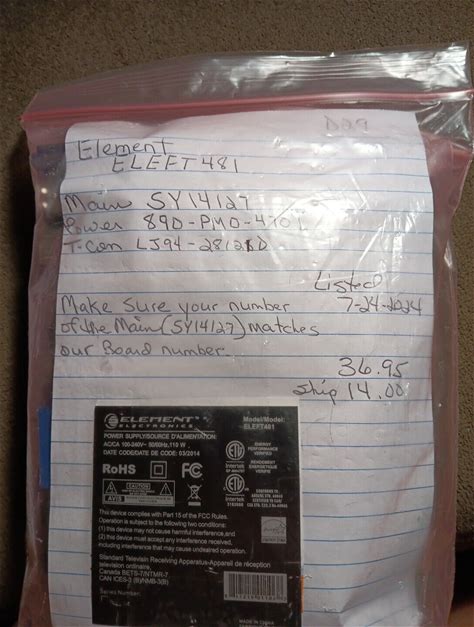 D29
Element
ELEFT481
Main SY14127
Power 890-PM0-4701
T-Con LJ94-28121D
Listed
7-24-2024
Make Sure your number
of the Main (SY14127) matches
our Board number.
36.95
Ship 14.00
ELEMENT
ELECTRONICS
Model/Model:
ELEFT481
POWER SUPPLY/SOURCE D'ALIMENTATION:
AC/CA 100-240V~ 50/60Hz,110 W
DATE CODE/DATE DE CODE: 03/2014
RoHS
FC
ETL
Intertek
ENERGY
PERFORMANCE
VERIFIED
RENDEMENT
ENERGETIQUE
VERIFIE
CAUTION
AVIS
Intertek
This device complies with Part 15 of the FCC Rules.
Operation is subject to the following two conditions:
(1) this device may not cause harmful interference,and
(2) this device must accept any interference received,
including interference that may cause undesired operation.
Standard Television Receiving Apparatus-Appareil de réception
television ordinaire,
Canada BETS-7/NTMR-7
CAN ICES-3 (B)/NMB-3(B)
Serial Number:
MADE IN CHINA